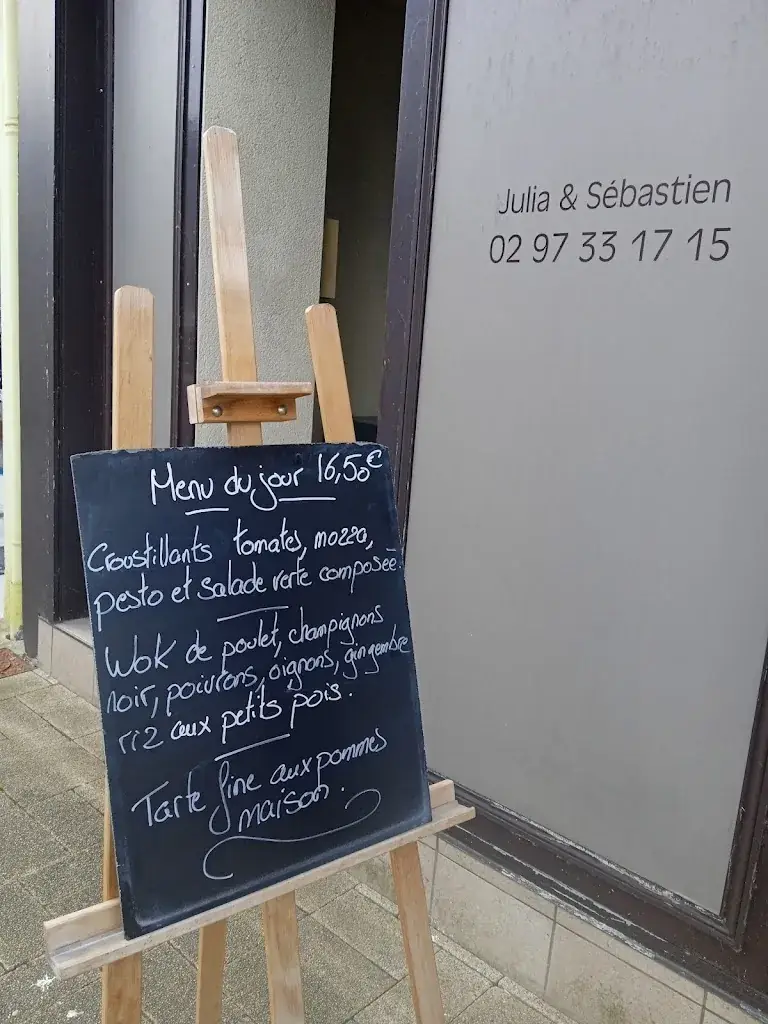 Julia & Sébastien
02 97 33 17 15
Menu du jour 16,50€
Croustillants tomates, mozza,
pesto et salade verte composée.
Wok de poulet, champignons
noir, poivrons, oignons, gingembre
riz aux petits pois.
Tarte fine aux pommes
maison.